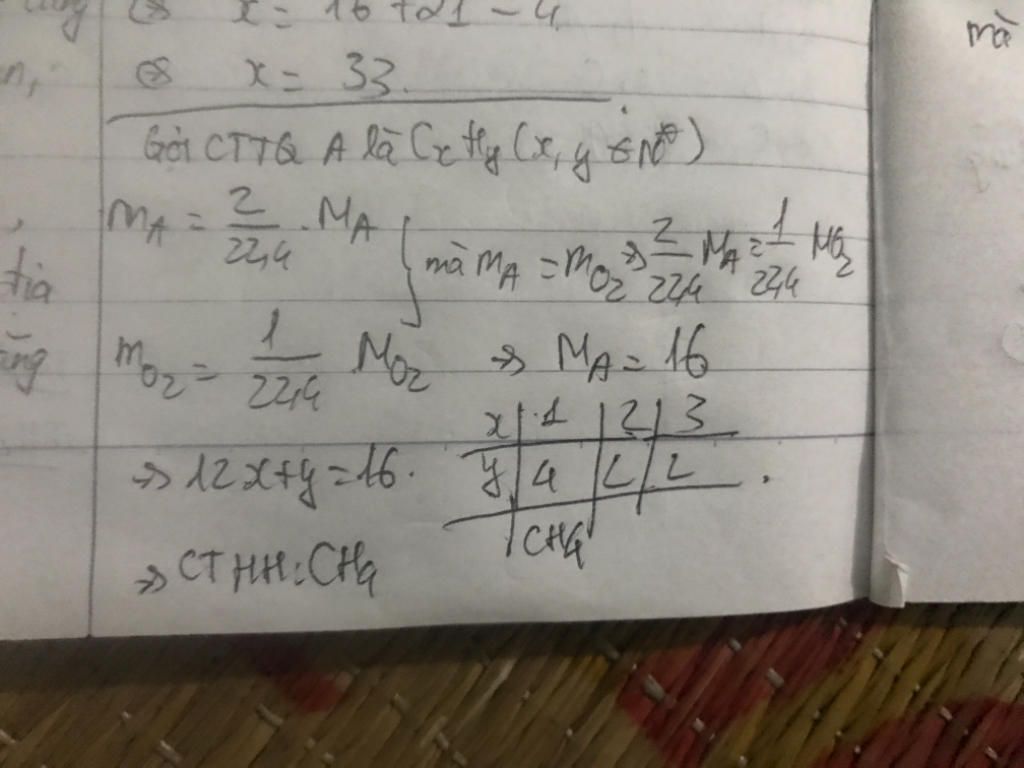 x = 16 + 21 - 4
n, ⇔ x = 33.
mà
Gọi CTTQ A là CxHy (x, y ∈ N*)
mA = 2/22,4 . MA
mà mA = mO2 → 2/22,4 MA = 1/22,4 MO2
tia
mO2 = 1/22,4 MO2 → MA = 16
x | 1 | 2 | 3
→ 12x + y = 16. y | 4 | L | L .
CH4
→ CTHH: CH4